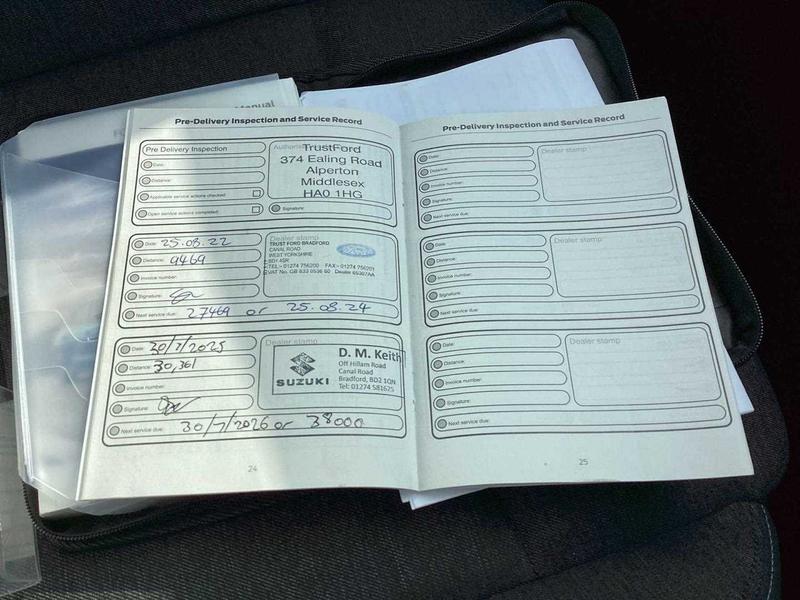 Manual
Pre-Delivery Inspection and Service Record
Pre Delivery Inspection
Date:
Distance:
Applicable service actions checked:
Open service actions completed:
TrustFord
374 Ealing Road
Alperton
Middlesex
HA0 1HG
Signature:
Date: 25.08.22
Distance: 9469
Invoice number:
Signature:
Next service due: 27469 or 25.08.24
Dealer stamp
TRUST FORD BRADFORD
CANAL ROAD
WEST YORKSHIRE
BD1 4SR
TEL - 01274 756200 FAX - 01274 756201
VAT No. GB 633 0536 60 Dealer
Ford
Date: 30/7/2025
Distance: 30,361
Invoice number:
Signature:
Next service due: 30/7/2026 or 38000
Dealer stamp
SUZUKI
D. M. Keith
Off Hillam Road
Canal Road
Bradford, BD2 1QN
Tel: 01274 581625
24
Pre-Delivery Inspection and Service Record
Date:
Distance:
Invoice number:
Signature:
Next service due:
Dealer stamp
Date:
Distance:
Invoice number:
Signature:
Next service due:
Dealer stamp
Date:
Distance:
Invoice number:
Signature:
Next service due:
Dealer stamp
25